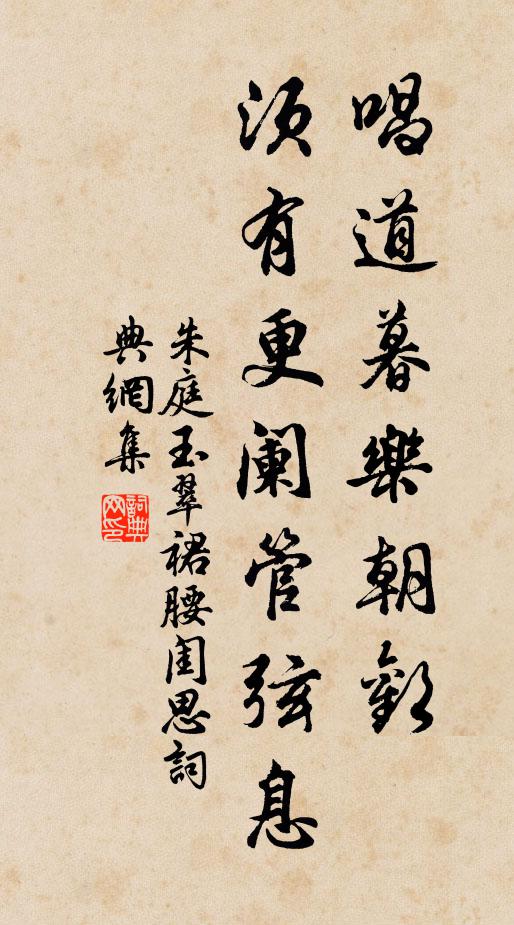 唱道暮樂朝歡
須有更闌管弦息
朱庭玉翠裙腰閨思詞
典網集
詞典網印